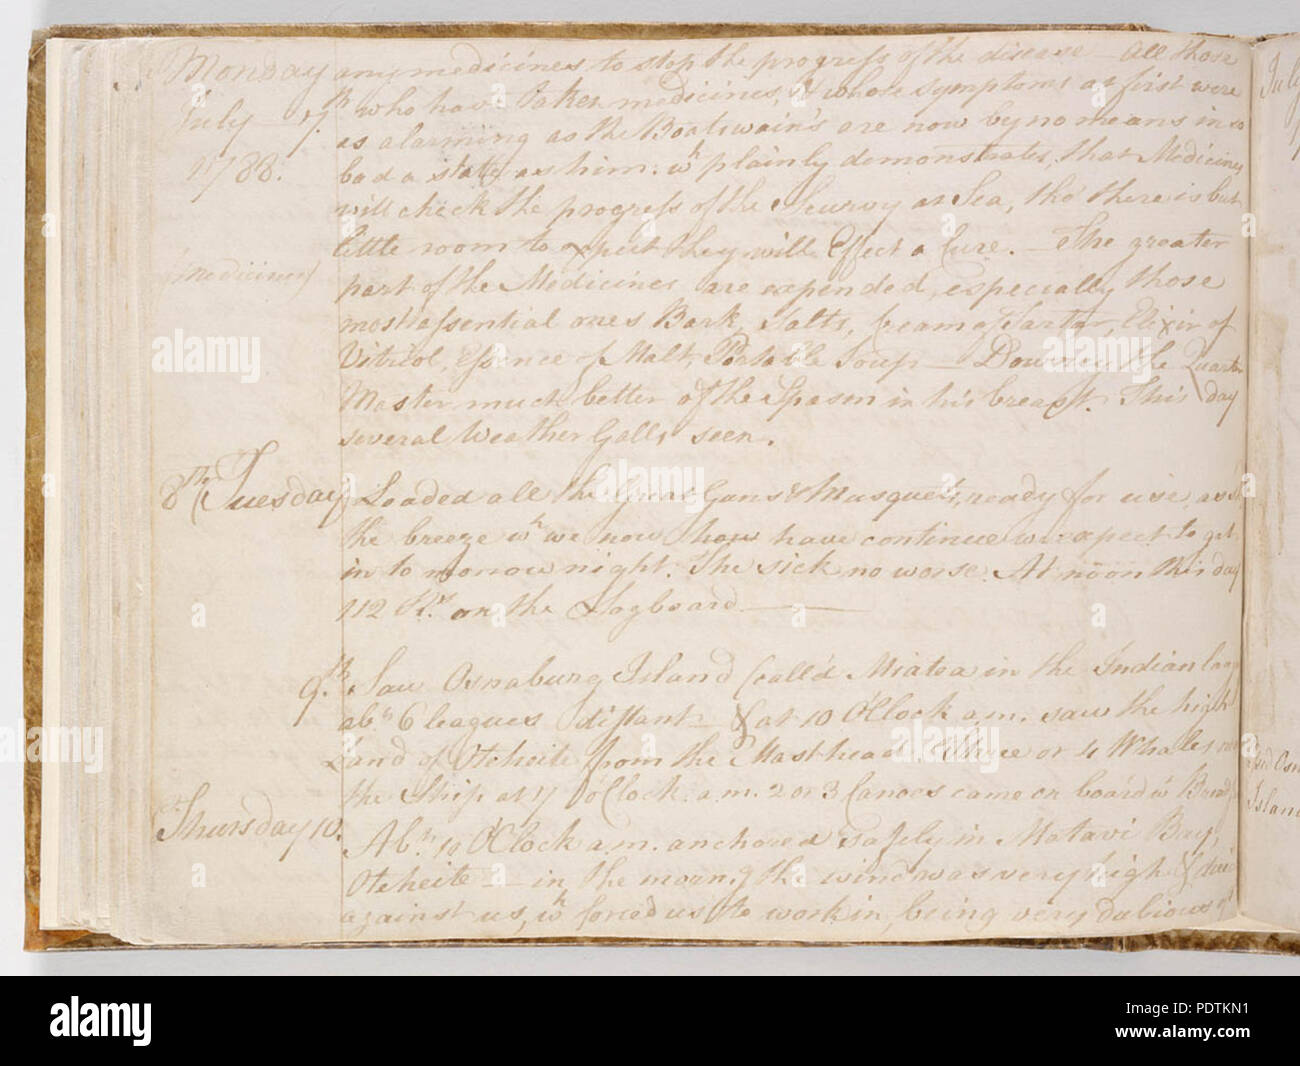 Monday any medicines to stop the progress of the disease – All those
July 7th who have taken medicines, & whose symptoms at first were
as alarming as the Boatswain's are now by no means in so
1788. bad a state as him: wh plainly demonstrates, that Medicines
will check the progress of the Scurvy at Sea, tho' there is but
little room to expect they will Effect a Cure. – The greater
(medicines) part of the Medicines are expended, especially those
most essential ones Bark, Salts, Cream of Tartar, Elixir of
Vitriol, Essence of Malt, Portable Soup – Downey the Quarter
Master much better of the Spasm in his breast. This day
several Weather Galls seen.
8th Tuesday Loaded all the Great Guns & Musquets, ready for use, as sh
the breeze wh we now have continue we expect to get
in to morrow night. The sick no worse. At noon this day
112 Ks. on the Logboard
9th. Saw Osnaburg Island (call'd Miatea in the Indian lang
abt 6 leagues distant – & at 10 O'Clock a.m. saw the high
Land of Oteheite from the Masthead. Three or 4 Whales
the Ship at 7 O'Clock. a.m. 2 or 3 Canoes came on board wh Bread
Thursday 10. Abt. 10 O'Clock a.m. anchored safely in Matavi Bay,
Oteheite – in the morng the wind was very high &
against us, wh forced us to work in, being very dubious
July
Osn
Island
alamy
alamy
alamy
a
a
a
a
alamy
Image ID: PDTKN1
www.alamy.com